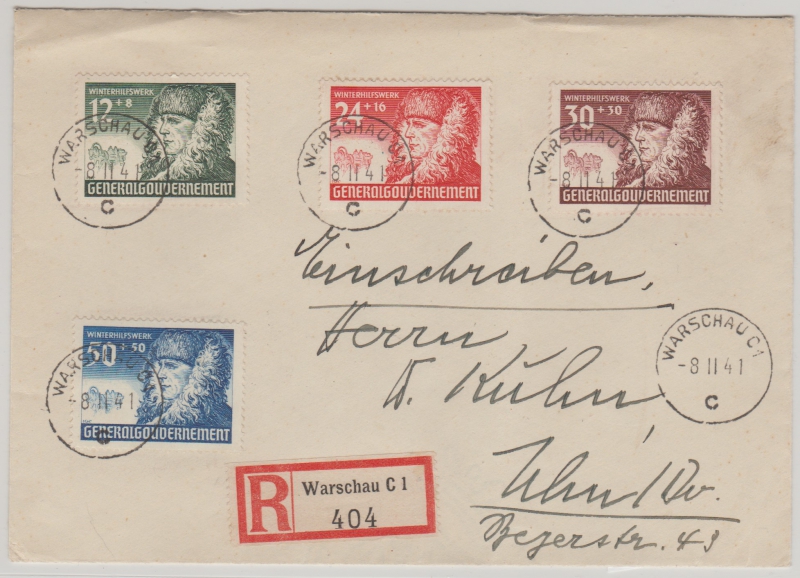 WINTERHILFSWERK
12+8
GENERALGOUVERNEMENT
WARSCHAU C1
-8 II 41
C
WINTERHILFSWERK
24+16
GENERALGOUVERNEMENT
WARSCHAU C1
-8 II 41
C
WINTERHILFSWERK
30+30
GENERALGOUVERNEMENT
WARSCHAU C1
-8 II 41
C
Einschreiben,
Herrn
D. Kühn,
Ulm/Do.
Beyerstr. 43
WINTERHILFSWERK
50+50
GENERALGOUVERNEMENT
WARSCHAU C1
-8 II 41
C
WARSCHAU C1
-8 II 41
C
R
Warschau C 1
404